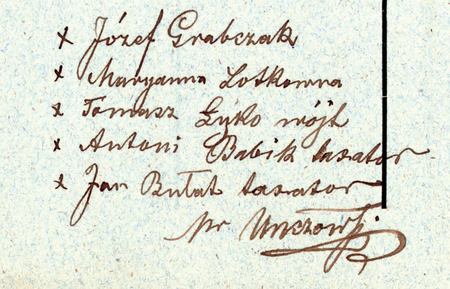 x Józef Grabczak
x Maryanna Lotkowna
x Tomasz Łyko wójt
x Antoni Babik taxator
x Jan Bułat taxator
pr